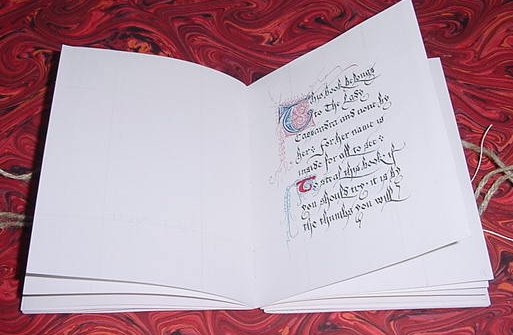 This book belongs
to The Lady
Cassandra and none by
hers, for her name is
inside for all to see:
To steal this book if
you should try, it is by
the thumbs you will